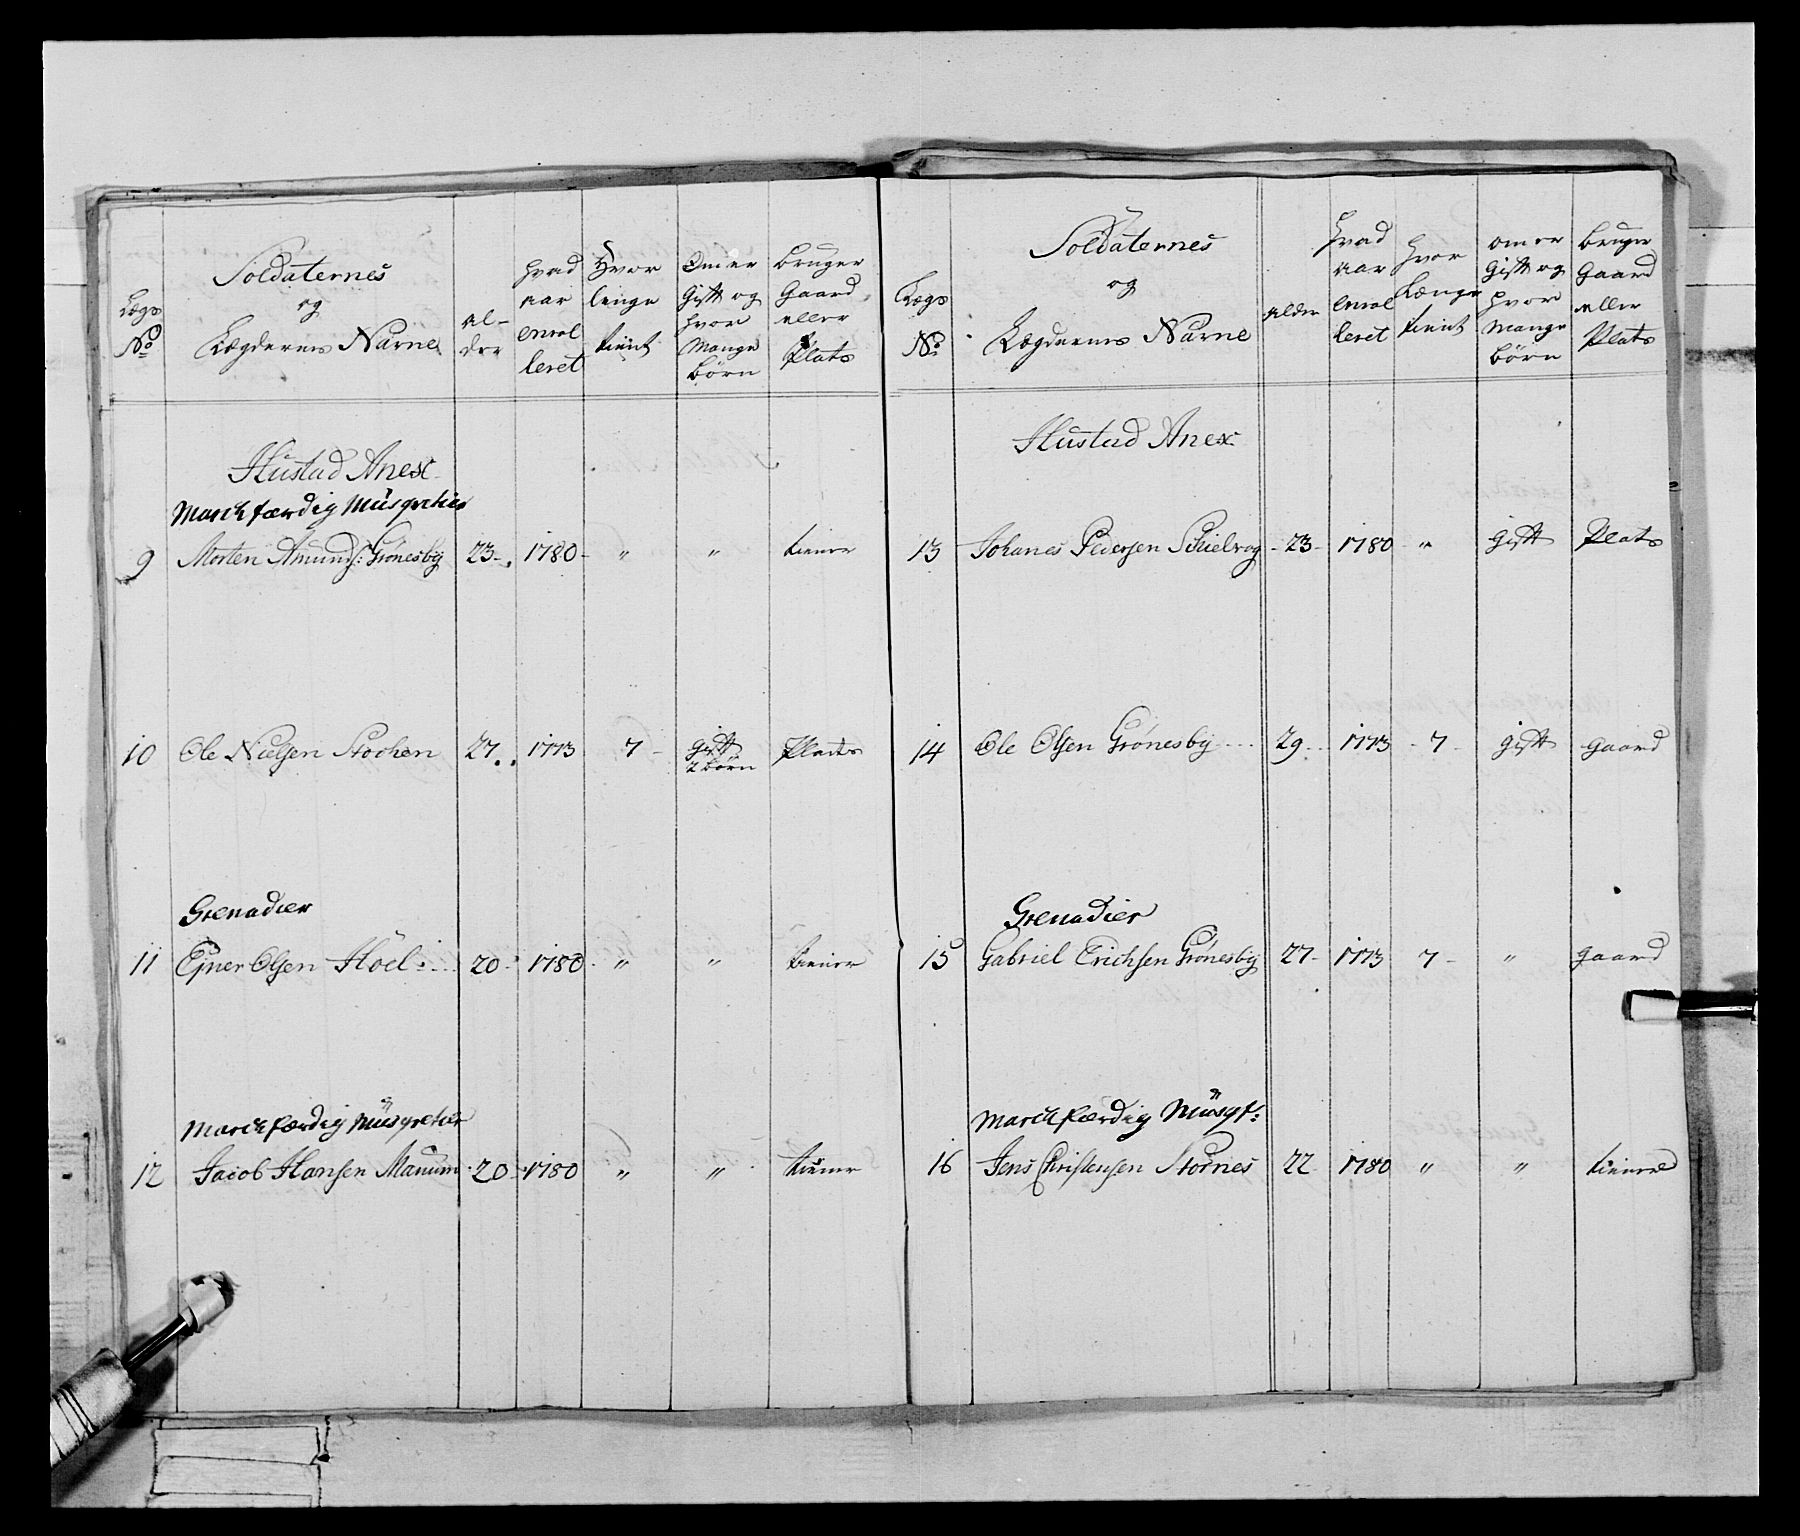 Lægs No
Soldaternes
og
Lægdernes Nafne
al-
der
hvad
aar
enrol
leret
Hvor
lenge
tient
Om er
Gift og
hvor
Mange
børn
bruger
Gaard
eller
Plats
Hustad Anex
Marchfærdig Musqvetier
9 Morten Amunds: Grönesby 23 1780 " " tiener
10 Ole Nielsen Stochen 27 1773 7 gift Plads
2 børn
Grenadier
11 Ejner Olsen Höel 20 1780 " " tiener
Marchfærdig Müsqvetier
12 Jacob Hansen Manum 20 1780 " " tiener
Lægs
No
Soldaternes
og
Lægdernes Nafne
alder
hvad
aar
enrol
leret
hvor
Længe
tient
om er
Gift og
hvor
Mange
börn
bruger
Gaard
eller
Plats
Hustad Anex
13 Johanes Pedersen Schielvog 23 1780 " gift Plats
14 Ole Olsen Grönesby 29 1773 7 gift gaard
Grenadier
15 Gabriel Erichsen Grönesby 27 1773 7 " gaard
Marchfærdig Müsqt:
16 Jens Christensen Stornes 22 1780 " " tienere